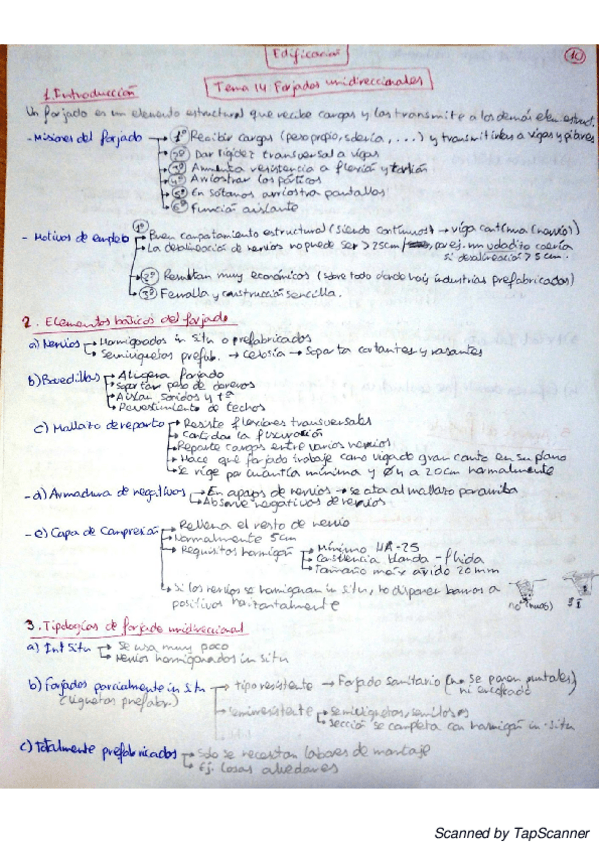 Edificación
10
Tema 14 Forjados unidireccionales
1. Introducción
Un forjado es un elemento estructural que recibe cargas y las transmite a los demás elem estruct.
- Misiones del forjado → 1º Recibir cargas (peso propio, sderia, ....) y transmitirlas a vigas y pilares
2º Dar rigidez transversal a vigas
3º Aumenta resistencia a flexión y torsión
4º Arriostrar los pórticos
5º En sótanos arriostra pantallas
6º Función aislante
- Motivos de empleo 1º → Buen comportamiento estructural (siendo continuos) → viga continua (nervios)
→ La desalineación de nervios no puede ser > 25cm, por ej. un voladito caería
si desalineación > 5 cm.
2º Resultan muy económicos (sobre todo donde hay industrias prefabricados)
3º Ferralla y construcción sencilla.
2. Elementos básicos del forjado
a) Nervios → Hormigonados in situ o prefabricados
→ Semiviguetas prefab. → Celosía → Soporta cortantes y rasantes
b) Bovedillas → Aligera forjado
→ Soportar peso de
→ Aislan sonidos y tª
→ Revestimiento de techos
c) Mallazo de reparto → Resiste flexiones transversales
→ Controlar la fisuración
→ Reparte cargas entre varios nervios
→ Hace que forjado trabaje como viga de gran canto en su plano
→ Se rige por cuantía mínima y Ø4 a 20cm normalmente
- d) Armadura de negativos → En apoyos de nervios → se ata al mallazo por arriba
→ Absorve negativos de nervios
- e) Capa de Compresión → Rellena el resto de nervio
→ Normalmente 5cm
→ Requisitos hormigón → Mínimo HA-25
→ Consistencia blanda - fluida
→ Tamaño máx árido 20mm
→ Si los nervios se hormigonan in situ, disponer barras a
positivos horizontalmente
no
sí
3. Tipologías de forjado unidireccional
a) Int Situ → Se usa muy poco
→ Nervios hormigonados in situ
b) Forjados parcialmente in situ → tipo resistente → Forjado sanitario (no se ponen puntales)
(viguetas prefabr.) ni encofrado
→ semirresistente → Semiviguetas,
→ Sección se completa con hormigón in situ
c) Totalmente prefabricados → Solo se necesitan labores de montaje
→ Ej. Losas alveolares
Scanned by TapScanner